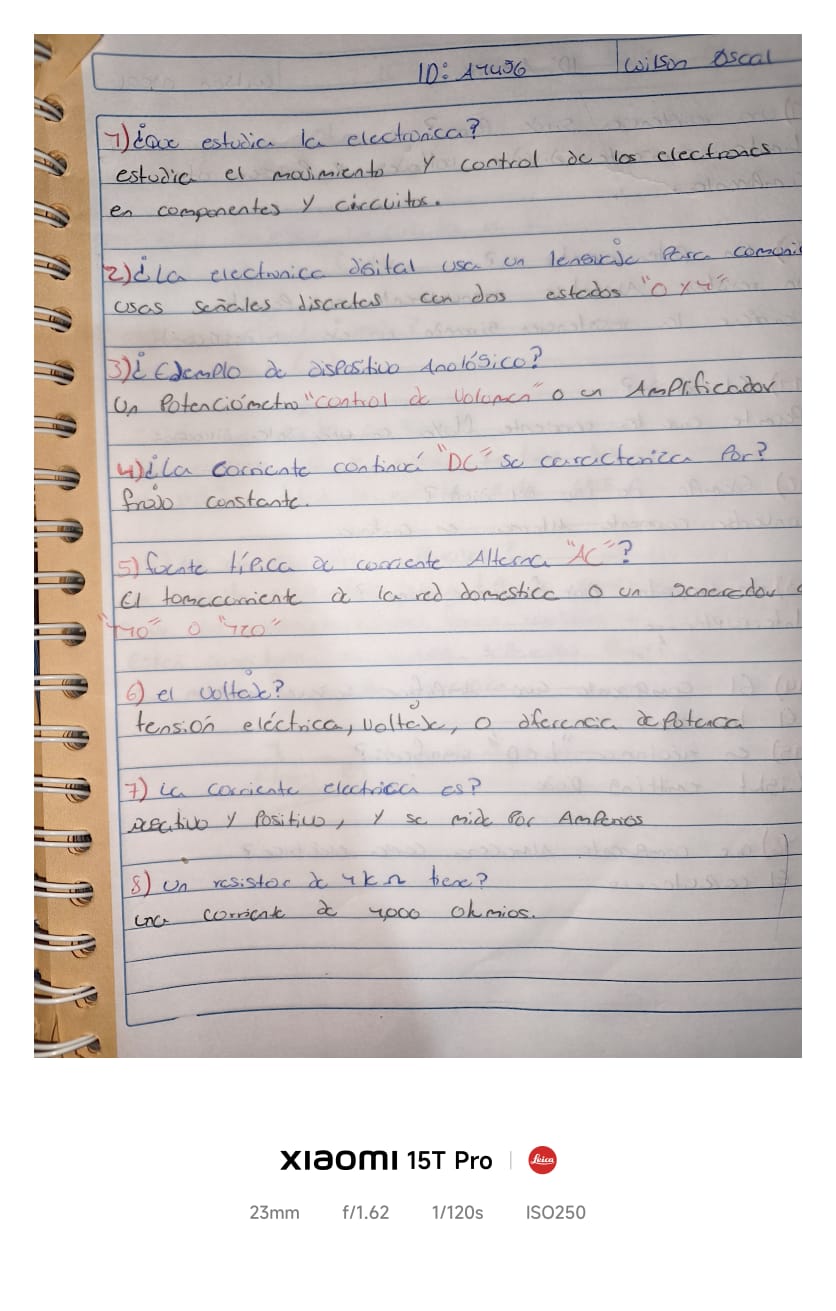 ID: 17456 Wilson Oscal
1) ¿Que estudia la electronica?
estudia el movimiento y control de los electrones
en componentes y circuitos.
2) ¿La electronica digital usa un lenguaje Para comuni
usas señales discretas con dos estados "0 y 1"
3) ¿Ejemplo de dispositivo Analógico?
Un Potenciómetro "control de volumen" o un Amplificador
4) ¿La corriente continua "DC" se caracteriza Por?
flujo constante.
5) fuente típica de corriente Alterna "AC"?
El tomacorriente de la red domestica o un generador
"110" o "220"
6) el voltaje?
tensión eléctrica, voltaje, o diferencia de Potenca
7) La corriente electrica es?
negativo y Positivo, y se mide Por Amperios
8) Un resistor de 1kΩ tiene?
una corriente de 1,000 ohmios.
XIAOMI 15T Pro | Leica
23mm f/1.62 1/120s ISO250